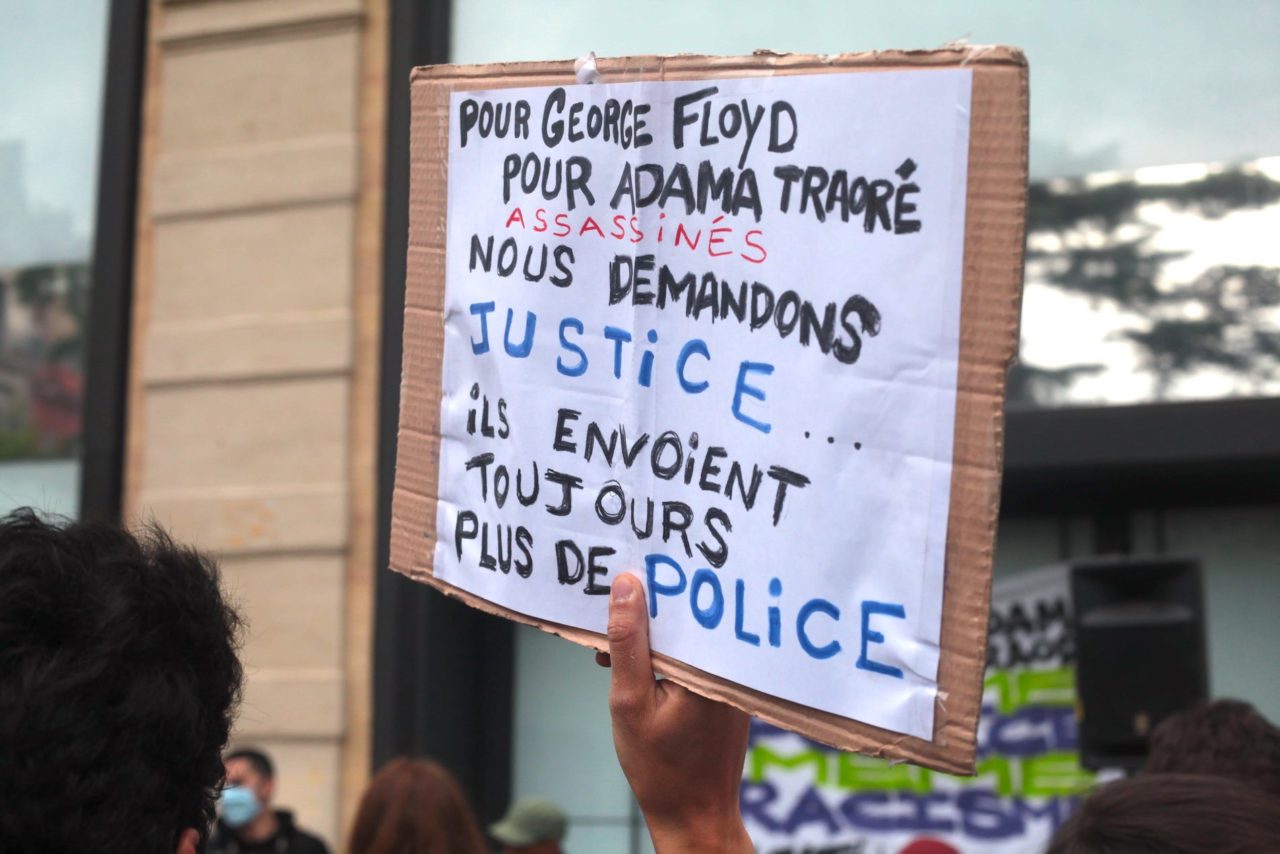 POUR GEORGE FLOYD
POUR ADAMA TRAORÉ
ASSASSiNÉS
NOUS DEMANDONS
JUSTiCE...
iLS ENVOiENT
TOUJOURS
PLUS DE POLiCE
MÊME
RACISME